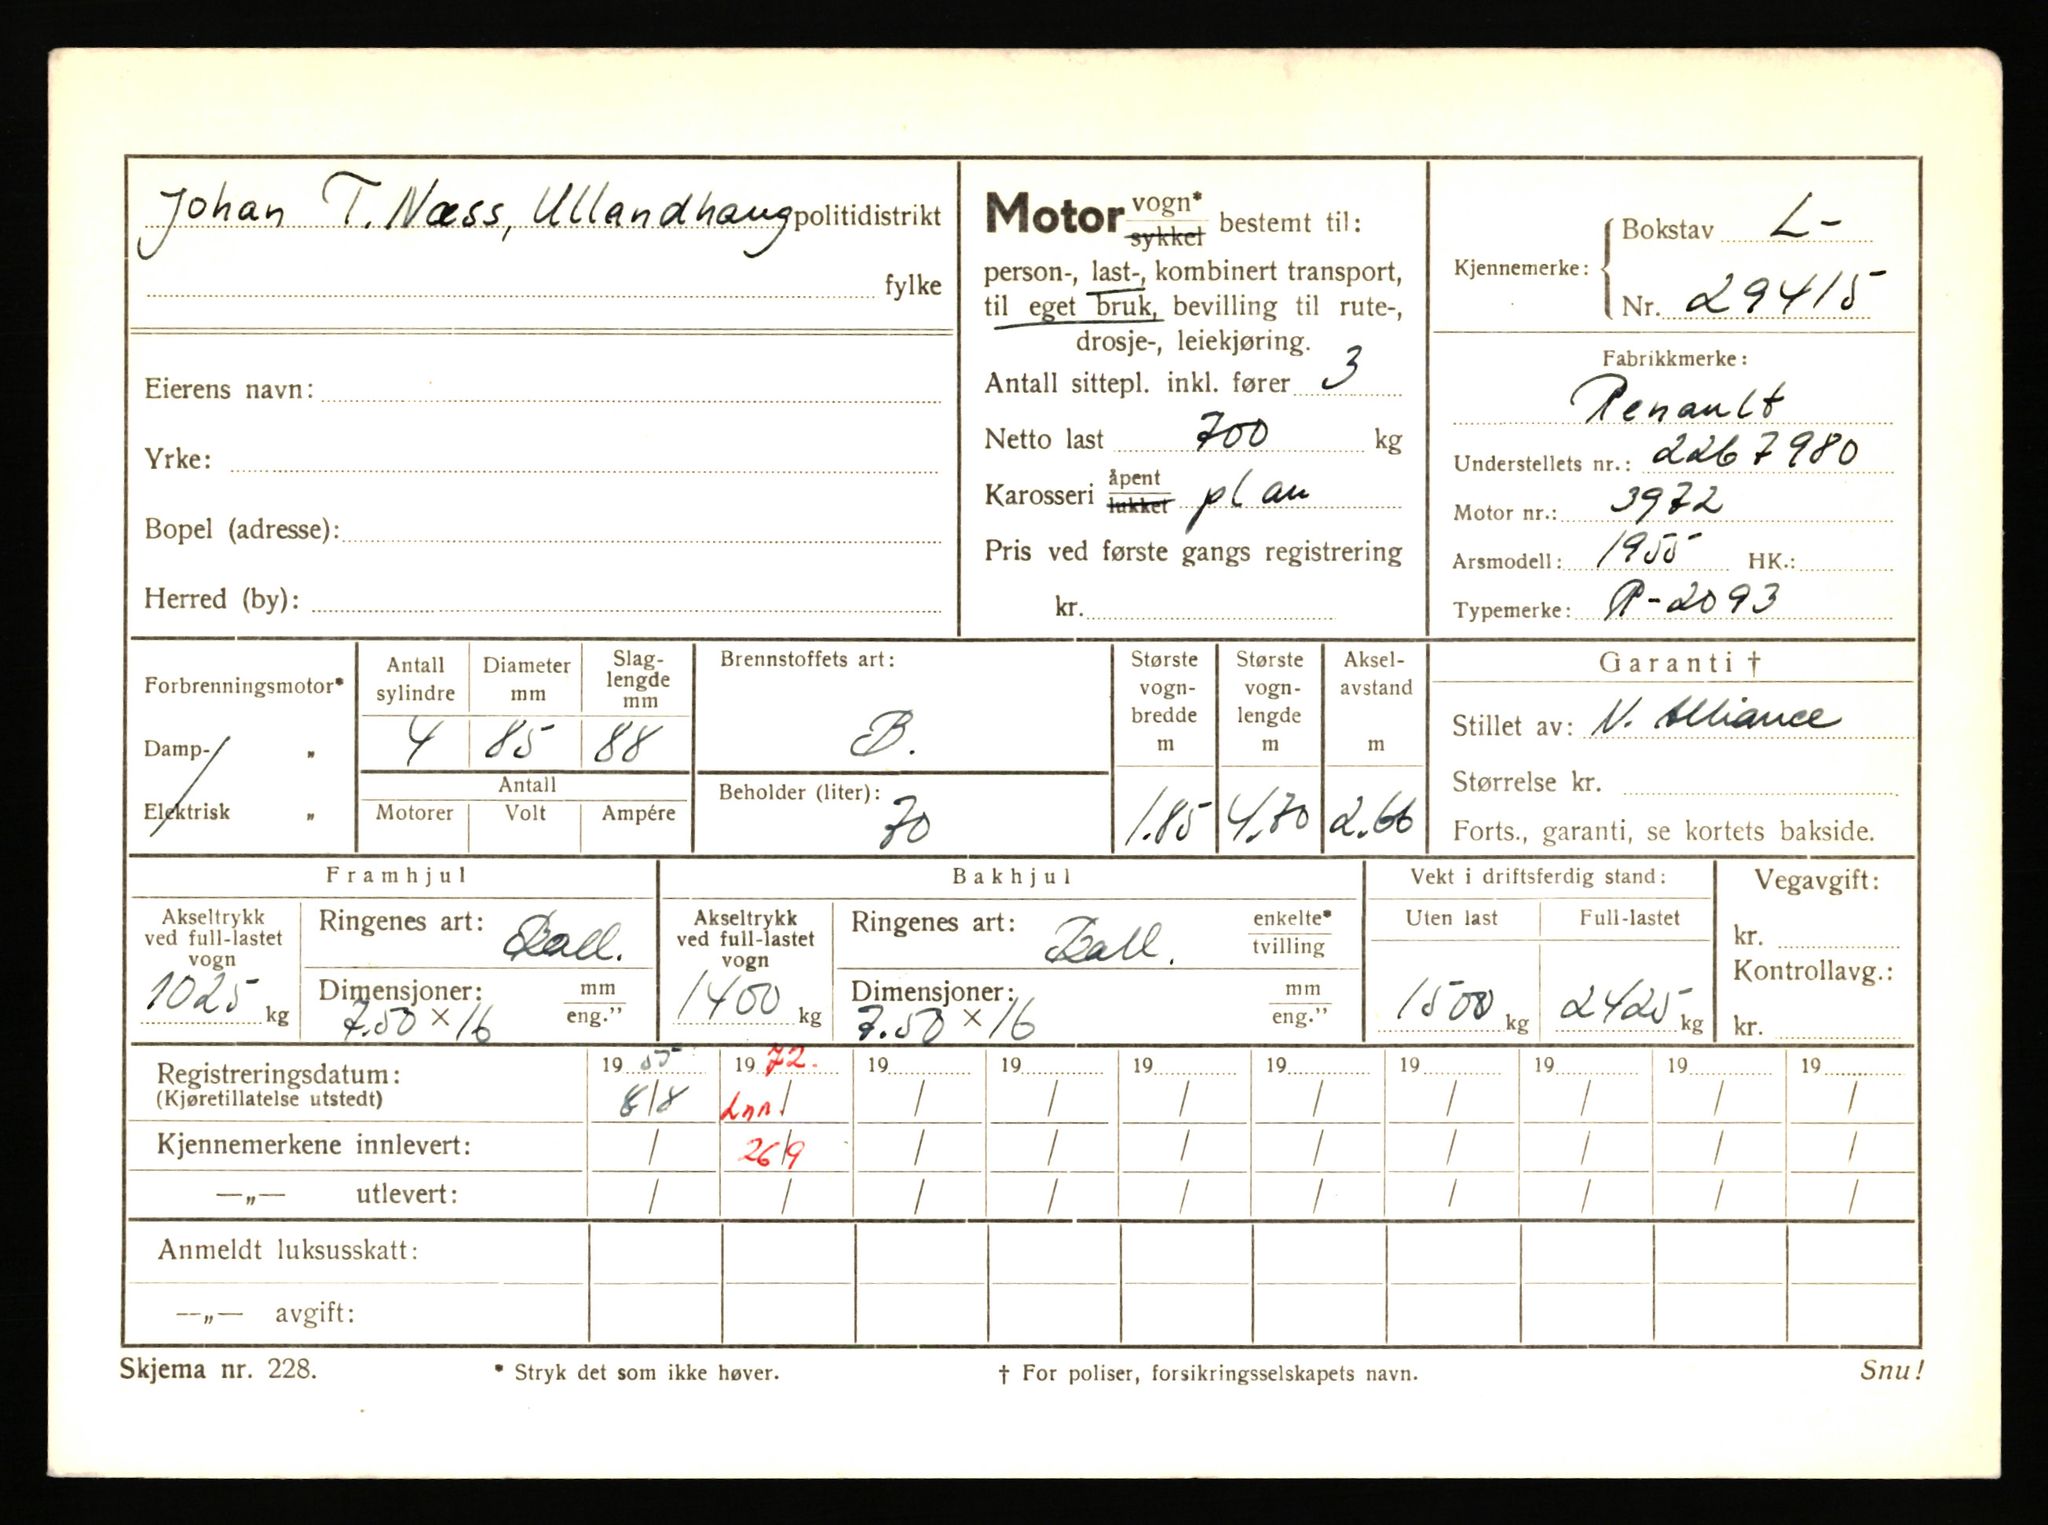 Johan T. Næss, Ullandhaug politidistrikt
fylke
Eierens navn:
Yrke:
Bopel (adresse):
Herred (by):
Motor vogn* sykkel bestemt til:
person-, last-, kombinert transport,
til eget bruk, bevilling til rute-,
drosje-, leiekjøring.
Antall sittepl. inkl. fører 3
Netto last 700 kg
Karosseri åpent lukket plan
Pris ved første gangs registrering
kr.
Kjennemerke: Bokstav L-
Nr. 29415
Fabrikkmerke:
Renault
Understellets nr.: 2267980
Motor nr.: 3972
Arsmodell: 1955 HK.:
Typemerke: R-2093
Forbrenningsmotor*
Damp- „
Elektrisk „
Antall sylindre
4
Diameter mm
85
Slag-lengde mm
88
Antall
Motorer Volt Ampére
Brennstoffets art:
B.
Beholder (liter):
70
Største vogn-bredde m
1.85
Største vogn-lengde m
4.70
Aksel-avstand m
2.66
Garanti †
Stillet av: N. Alliance
Størrelse kr.
Forts., garanti, se kortets bakside.
Framhjul
Akseltrykk ved full-lastet vogn
1025 kg
Ringenes art: Ball.
Dimensjoner: mm eng.”
7.50 × 16
Bakhjul
Akseltrykk ved full-lastet vogn
1400 kg
Ringenes art: Ball. enkelte* tvilling
Dimensjoner: mm eng.”
7.50 × 16
Vekt i driftsferdig stand:
Uten last Full-lastet
1500 kg 2425 kg
Vegavgift:
kr.
Kontrollavg.:
kr.
19 55 19 72. 19 19 19 19 19 19 19 19
Registreringsdatum:
(Kjøretillatelse utstedt) 8/8 / / / / / / / / /
Kjennemerkene innlevert: / 26/9 / / / / / / / /
—„— utlevert: / / / / / / / / / /
Anmeldt luksusskatt:
—„— avgift:
Skjema nr. 228. * Stryk det som ikke høver. † For poliser, forsikringsselskapets navn. Snu!